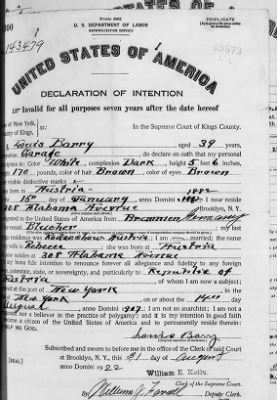 Form 2203
U. S. DEPARTMENT OF LABOR
NATURALIZATION SERVICE
DUPLICATE
143479
UNITED STATES OF AMERICA
DECLARATION OF INTENTION
Invalid for all purposes seven years after the date hereof
of New York,
ty of Kings.
In the Supreme Court of Kings County.
Louis Barry aged 39 years,
Garage do declare on oath that my personal
is: Color White, complexion Dark, height 5 feet 6 inches,
170 pounds, color of hair Brown color of eyes Brown
visible distinctive marks
in Austria
15th day of January anno Domini 1882
308 Alabama Avenue Brooklyn, N.Y.
to the United States of America from Bremen Germany
Blucher
Austria; I am married; the name
Rebecca; she was born at Austria
308 Alabama Avenue
bona fide intention to renounce forever all allegiance and fidelity to any foreign
potentate, state, or sovereignty, and particularly to Republic of
Austria, of whom I am now a subject;
at the port of New York, in the
New York on or about the 14th day
August, anno Domini 1907; I am not an anarchist; I am not a
nor a believer in the practice of polygamy; and it is my intention in good faith
citizen of the United States of America and to permanently reside therein:
GOD.
Louis Barry
Subscribed and sworn to before me in the office of the Clerk of said Court
at Brooklyn, N. Y., this 21 day of August
anno Domini 1922
William E. Kelly,
Clerk of the Supreme Court.
By
Deputy Clerk.